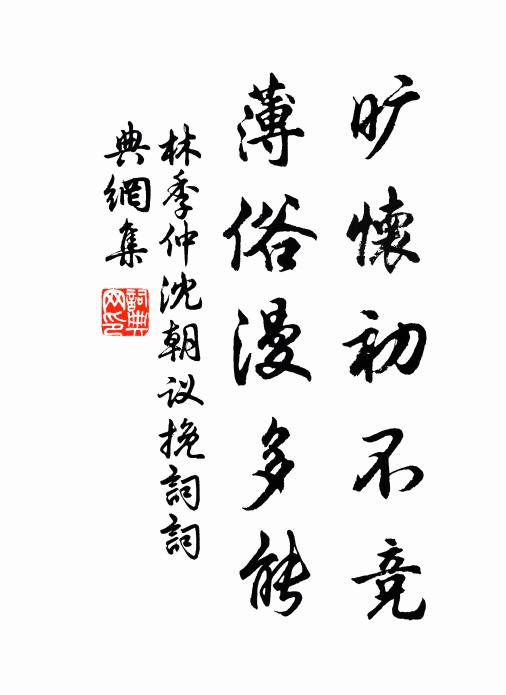 旷怀初不竞
薄俗漫多能
林季仲沈朝议挽詞詞
典網集
詞典
网印